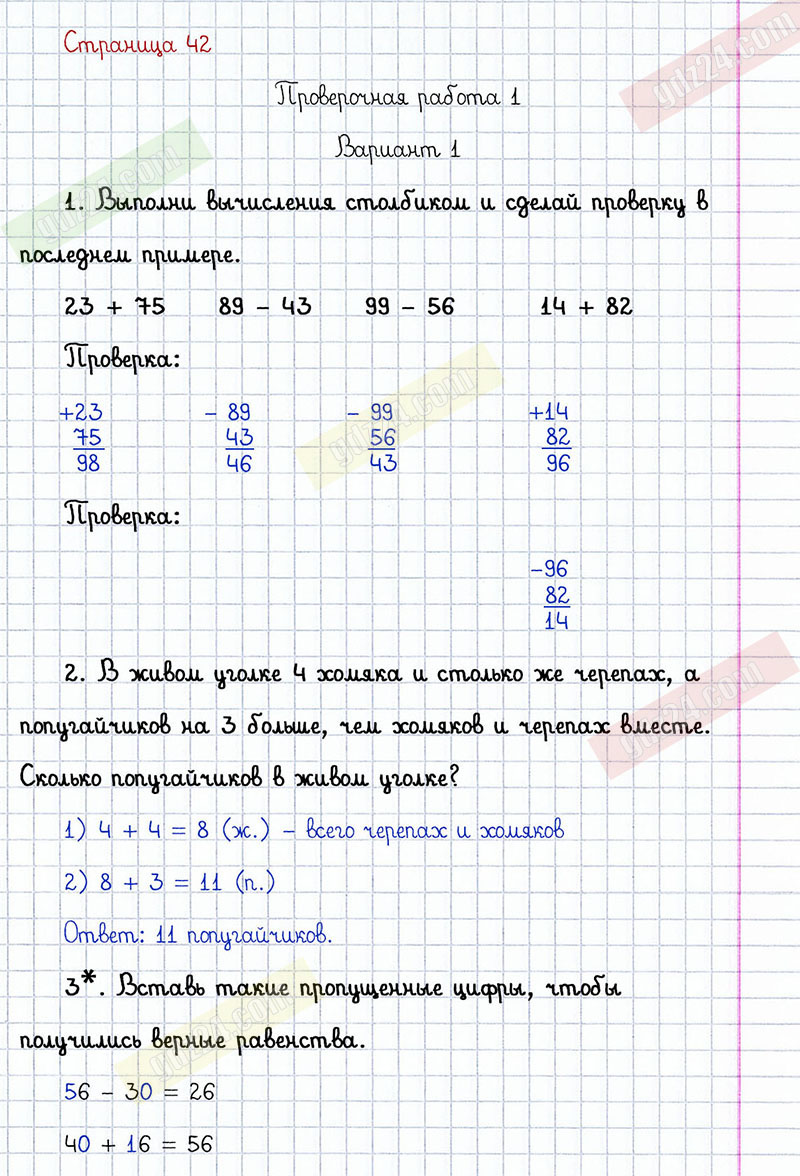 Страница 42
Проверочная работа 1
Вариант 1
1. Выполни вычисления столбиком и сделай проверку в
последнем примере.
23 + 75 89 - 43 99 - 56 14 + 82
Проверка:
+23 - 89 - 99 +14
75 43 56 82
98 46 43 96
Проверка:
-96
82
14
2. В живом уголке 4 хомяка и столько же черепах, а
попугайчиков на 3 больше, чем хомяков и черепах вместе.
Сколько попугайчиков в живом уголке?
1) 4 + 4 = 8 (ж.) - всего черепах и хомяков
2) 8 + 3 = 11 (п.)
Ответ: 11 попугайчиков.
3*. Вставь такие пропущенные цифры, чтобы
получились верные равенства.
56 - 30 = 26
40 + 16 = 56
gdz24.com
gdz24.com
gdz24.com
gdz24.com
gdz24.com